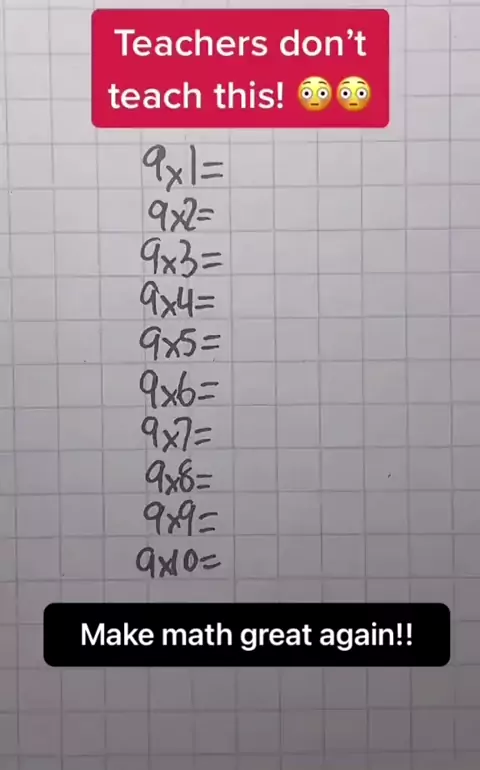 Teachers don't
teach this! 😳😳
9x1=
9x2=
9x3=
9x4=
9x5=
9x6=
9x7=
9x8=
9x9=
9x10=
Make math great again!!